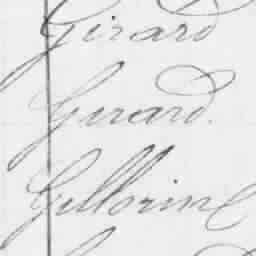 Girard
Gerard.
Gillorine